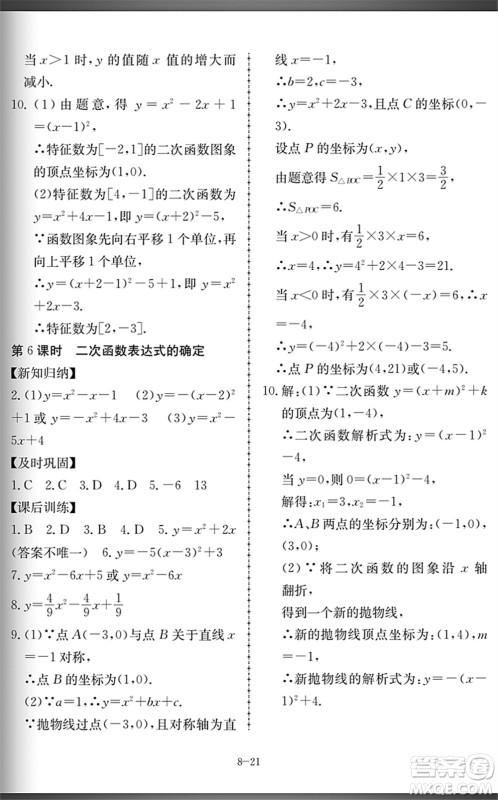 当 x＞1 时, y 的值随 x 值的增大而
减小.
10. (1) 由题意, 得 y=x²-2x+1
=(x-1)²,
∴特征数为[-2,1]的二次函数图象
的顶点坐标为(1,0).
(2)特征数为[4,-1]的二次函数为
y=x²+4x-1, 即 y=(x+2)²-5,
∵函数图象先向右平移1个单位, 再
向上平移1个单位,
∴y=(x+2-1)²-5+1, 即 y=x²+
2x-3.
∴特征数为[2,-3].
第 6 课时 二次函数表达式的确定
【新知归纳】
2. (1)y=x²-x-1 (2)y=-(x-2)²
+1或 y=-x²+4x-3 (3)y=x²-
5x+4
【及时巩固】
1. C 2. C 3. D 4. D 5. -6 13
【课后训练】
1. B 2. D 3. D 4. B 5. y=x²+2x
(答案不唯一) 6. y=-5(x-3)²+3
7. y=x²-6x+5 或 y=-x²-6x
8. y=4/9x²+4/9x+1/9
9. (1)∵点 A(-3,0)与点 B 关于直线 x=
-1 对称,
∴点 B 的坐标为(1,0).
(2)∵a=1, ∴y=x²+bx+c.
∵抛物线过点(-3,0), 且对称轴为直
线 x=-1,
∴b=2, ∴c=-3.
∴y=x²+2x-3, 且点 C 的坐标为(0,-
3).
设点 P 的坐标为(x,y).
由题意得 S△BOC=1/2×1×3=3/2,
∴S△POC=6.
当 x＞0 时, 有1/2×3×x=6,
∴x=4, ∴y=4²+2×4-3=21.
当 x＜0 时, 有1/2×3×(-x)=6, ∴x=
-4,
∴y=(-4)²+2×(-4)-3=5.
∴点 P 的坐标为(4,21)或(-4,5).
10. 解: (1)∵二次函数 y=(x+m)²+k
的顶点为 M(1,-4)
∴二次函数解析式为 y=(x-1)²-
4,
当 y=0 时, (x-1)²-4=0,
解得: x₁=-1, x₂=3,
∴A、B 两点的坐标分别为: (-1,0),
(3,0);
(2)∵将二次函数的图象沿 x 轴
翻折,
得到一个新的抛物线,
∴新的抛物线顶点坐标为: (1,4),
∴新的抛物线的解析式为: y=-(x
-1)²+4.
8-21
答案圈
MXQE.COM